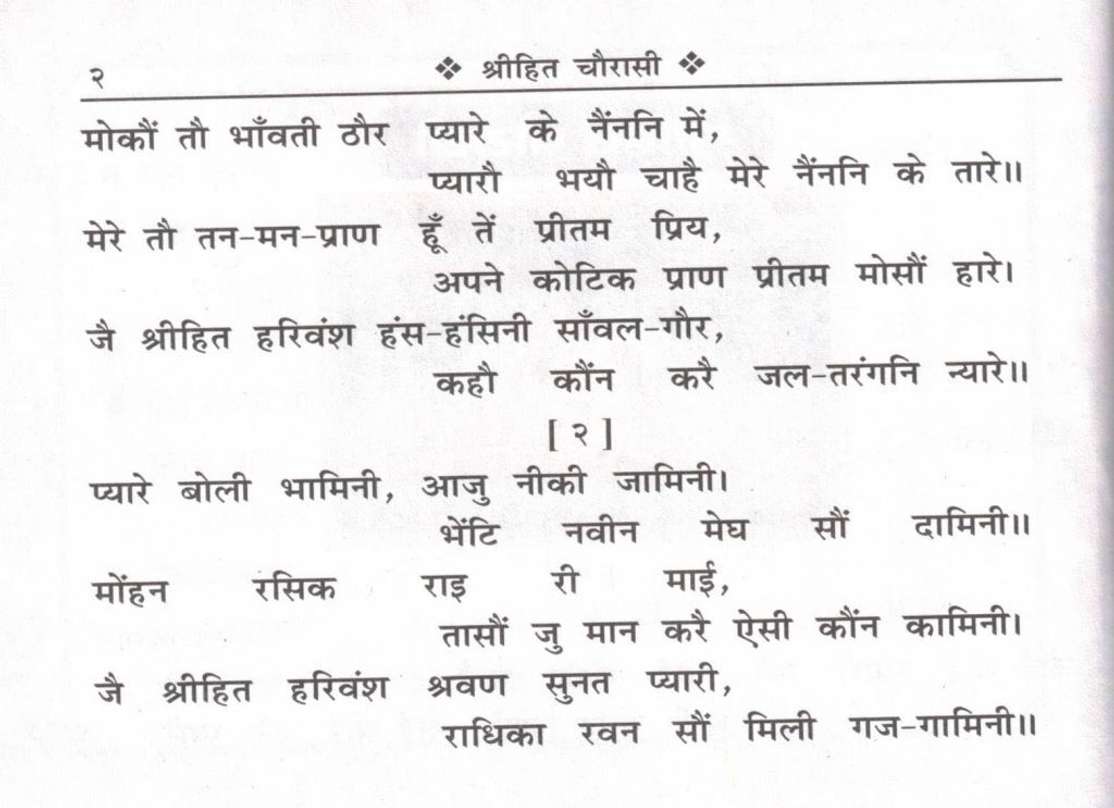 २ ❖ श्रीहित चौरासी ❖
मोकौं तौ भाँवती ठौर प्यारे के नैंननि में,
प्यारौ भयौ चाहै मेरे नैंननि के तारे॥
मेरे तौ तन-मन-प्राण हूँ तें प्रीतम प्रिय,
अपने कोटिक प्राण प्रीतम मोसौं हारे।
जै श्रीहित हरिवंश हंस-हंसिनी साँवल-गौर,
कहौ कौंन करै जल-तरंगनि न्यारे॥
[ २ ]
प्यारे बोली भामिनी, आजु नीकी जामिनी।
भेंटि नवीन मेघ सौं दामिनी॥
मोंहन रसिक राइ री माई,
तासौं जु मान करै ऐसी कौंन कामिनी।
जै श्रीहित हरिवंश श्रवण सुनत प्यारी,
राधिका रवन सौं मिली गज-गामिनी॥